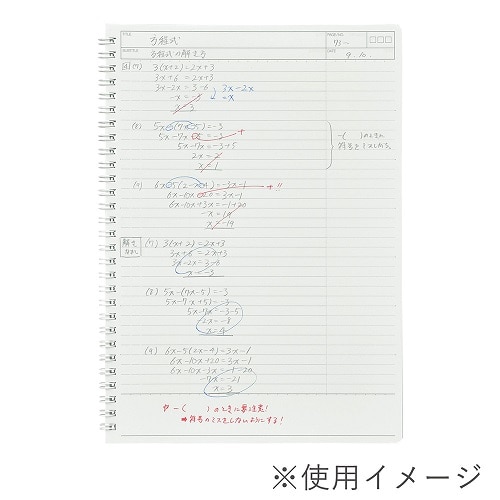 TITLE 方程式 PAGE/NO. 73〜
SUBTITLE 方程式の解き方 DATE 9.10.
(7) 3(x+2)=2x+3
3x+6=2x+3
3x-2x=3-6 3x-2x
-x=-3 -x
x=3
(8) 5x-(7x-5)=-3
5x-7x-5=-3
5x-7x=-3+5
2x=2
x=1
-( )のときに
符号をミスしがち。
(9) 6x-5(2x-4)=3x-1 +!!
6x-10x-20=3x-1
6x-10x+3x=-1+20
-x=19
x=-19
解き
なおし
(7) 3(x+2)=2x+3
3x+6=2x+3
3x-2x=3-6
x=-3
(8) 5x-(7x-5)=-3
5x-7x+5=-3
5x-7x=-3-5
-2x=-8
x=4
(9) 6x-5(2x-4)=3x-1
6x-10x+20=3x-1
6x-10x-3x=-1-20
-7x=-21
x=3
-( )のときに要注意!
➡符号のミスをしないようにする!
※使用イメージ